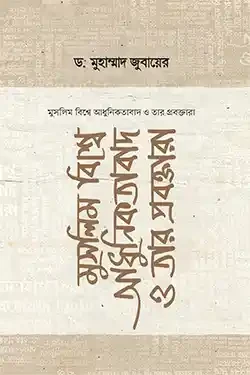 ড: মুহাম্মাদ জুবায়ের
মুসলিম বিশ্বে আধুনিকতাবাদ ও তার প্রবক্তারা
মুসলিম বিশ্বে
আধুনিকতাবাদ
ও তার প্রবক্তারা